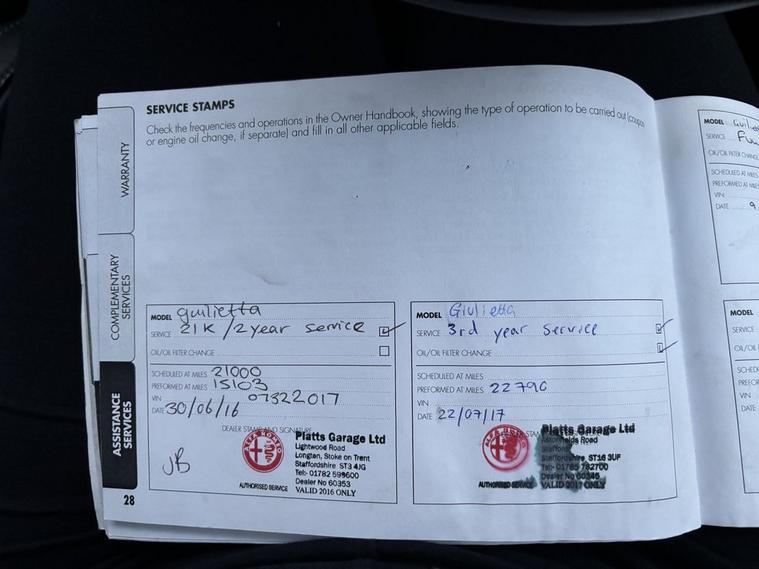 SERVICE STAMPS
Check the frequencies and operations in the Owner Handbook, showing the type of operation to be carried out (coupon
or engine oil change, if separate) and fill in all other applicable fields.
WARRANTY
COMPLEMENTARY
SERVICES
ASSISTANCE
SERVICES
28
MODEL guilietta
SERVICE 21K/2 year service
OIL/OIL FILTER CHANGE
SCHEDULED AT MILES 21000
PREFORMED AT MILES 15103
VIN 07322017
DATE 30/06/16
DEALER STAMP AND SIGNATURE
JB
ALFA ROMEO
AUTHORISED SERVICE
Platts Garage Ltd
Lightwood Road
Longton, Stoke on Trent
Staffordshire ST3 4JG
Tel:- 01782 599600
Dealer No 60353
VALID 2016 ONLY
MODEL Giulietta
SERVICE 3rd year service
OIL/OIL FILTER CHANGE
SCHEDULED AT MILES
PREFORMED AT MILES 22790
VIN
DATE 22/07/17
ALFA ROMEO
AUTHORISED SERVICE
Platts Garage Ltd
Road
Staffordshire ST16 3UF
Tel:- 01785 782700
Dealer No
VALID 2017 ONLY
MODEL
SERVICE
OIL/OIL FILTER CHANGE
SCHEDULED AT MILES
PREFORMED AT MILES
VIN
DATE 9
MODEL
SERVICE
VIN
DATE